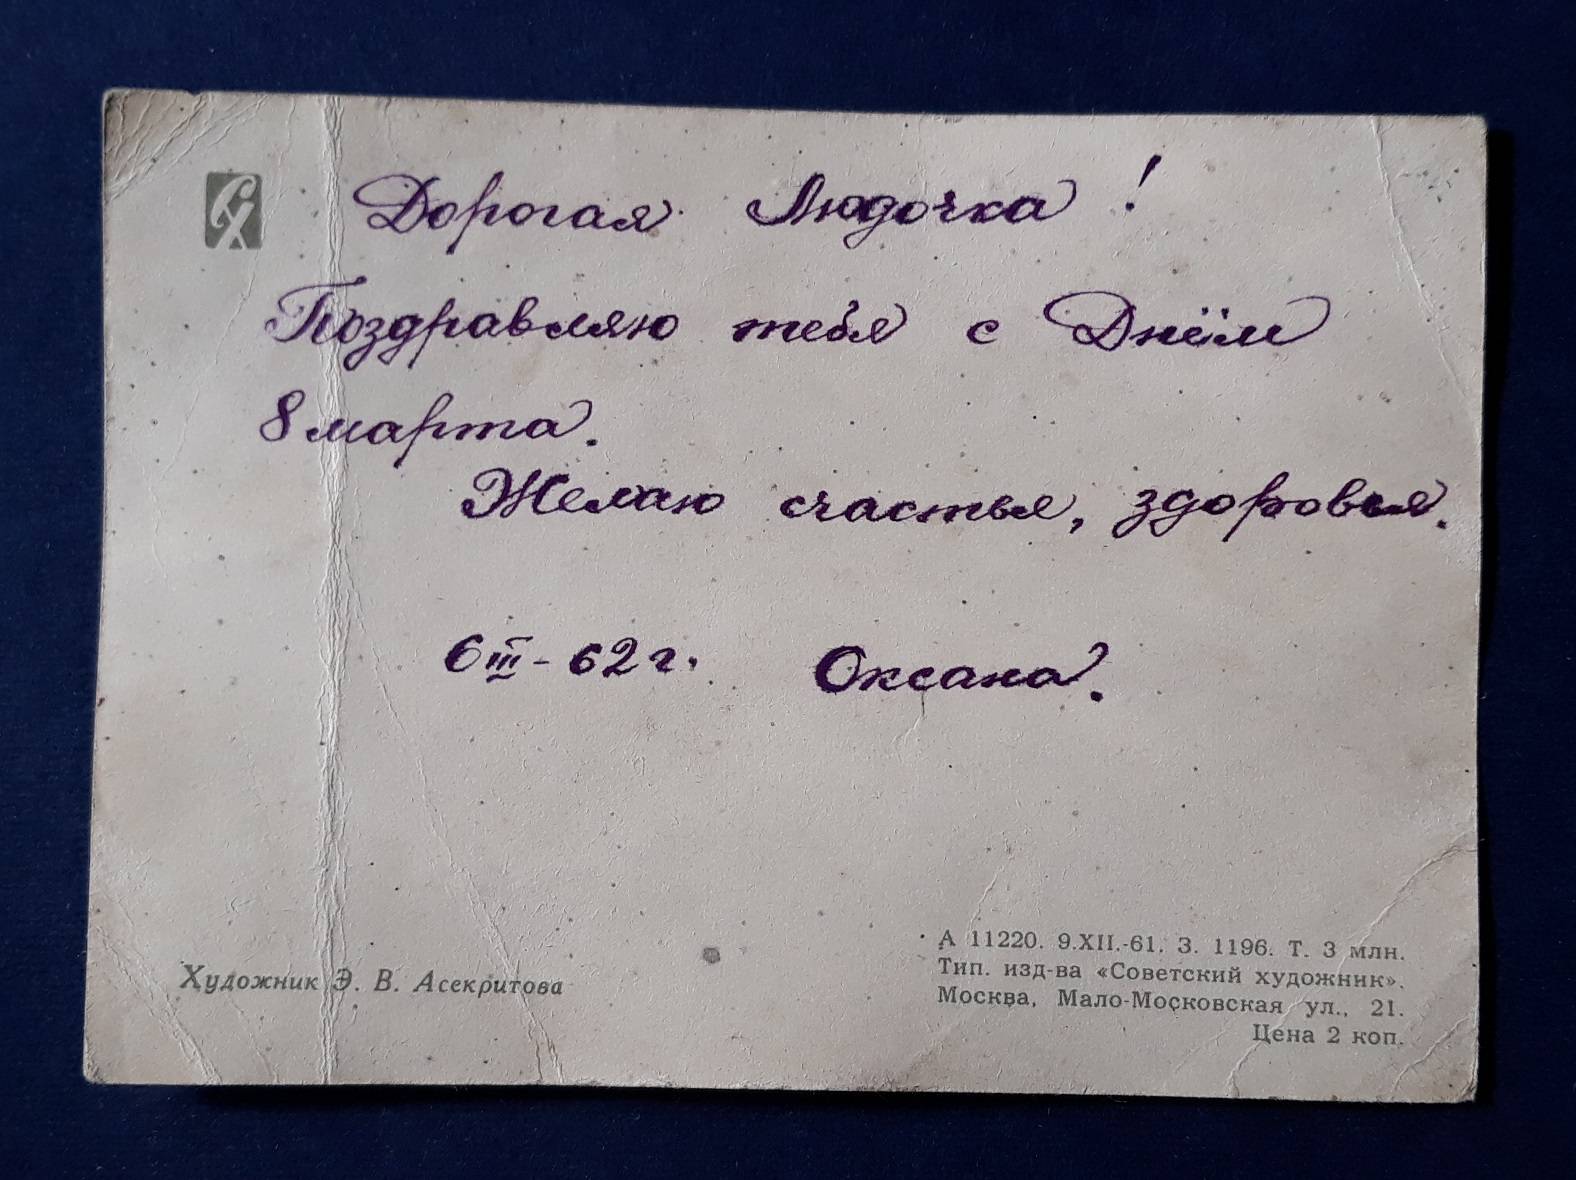 СХ
Дорогая Людочка!
Поздравляю тебя с Днём
8 марта.
Желаю счастья, здоровья.
6 III - 62 г. Оксана.
Художник Э. В. Асекритова
А 11220. 9.XII.-61. З. 1196. Т. 3 млн.
Тип. изд-ва «Советский художник».
Москва, Мало-Московская ул., 21.
Цена 2 коп.